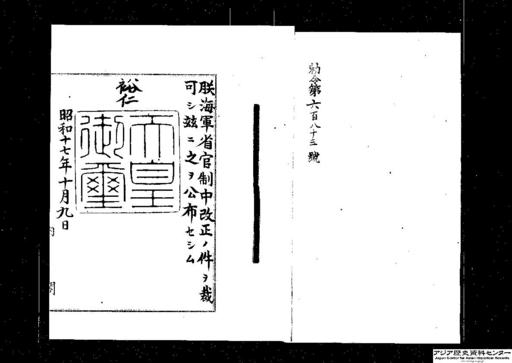 勅令第六百八十三號
朕海軍省官制中改正ノ件ヲ裁
可シ玆ニ之ヲ公布セシム
裕仁
天皇御璽
昭和十七年十月九日
内閣
アジア歴史資料センター
Japan Center for Asian Historical Records